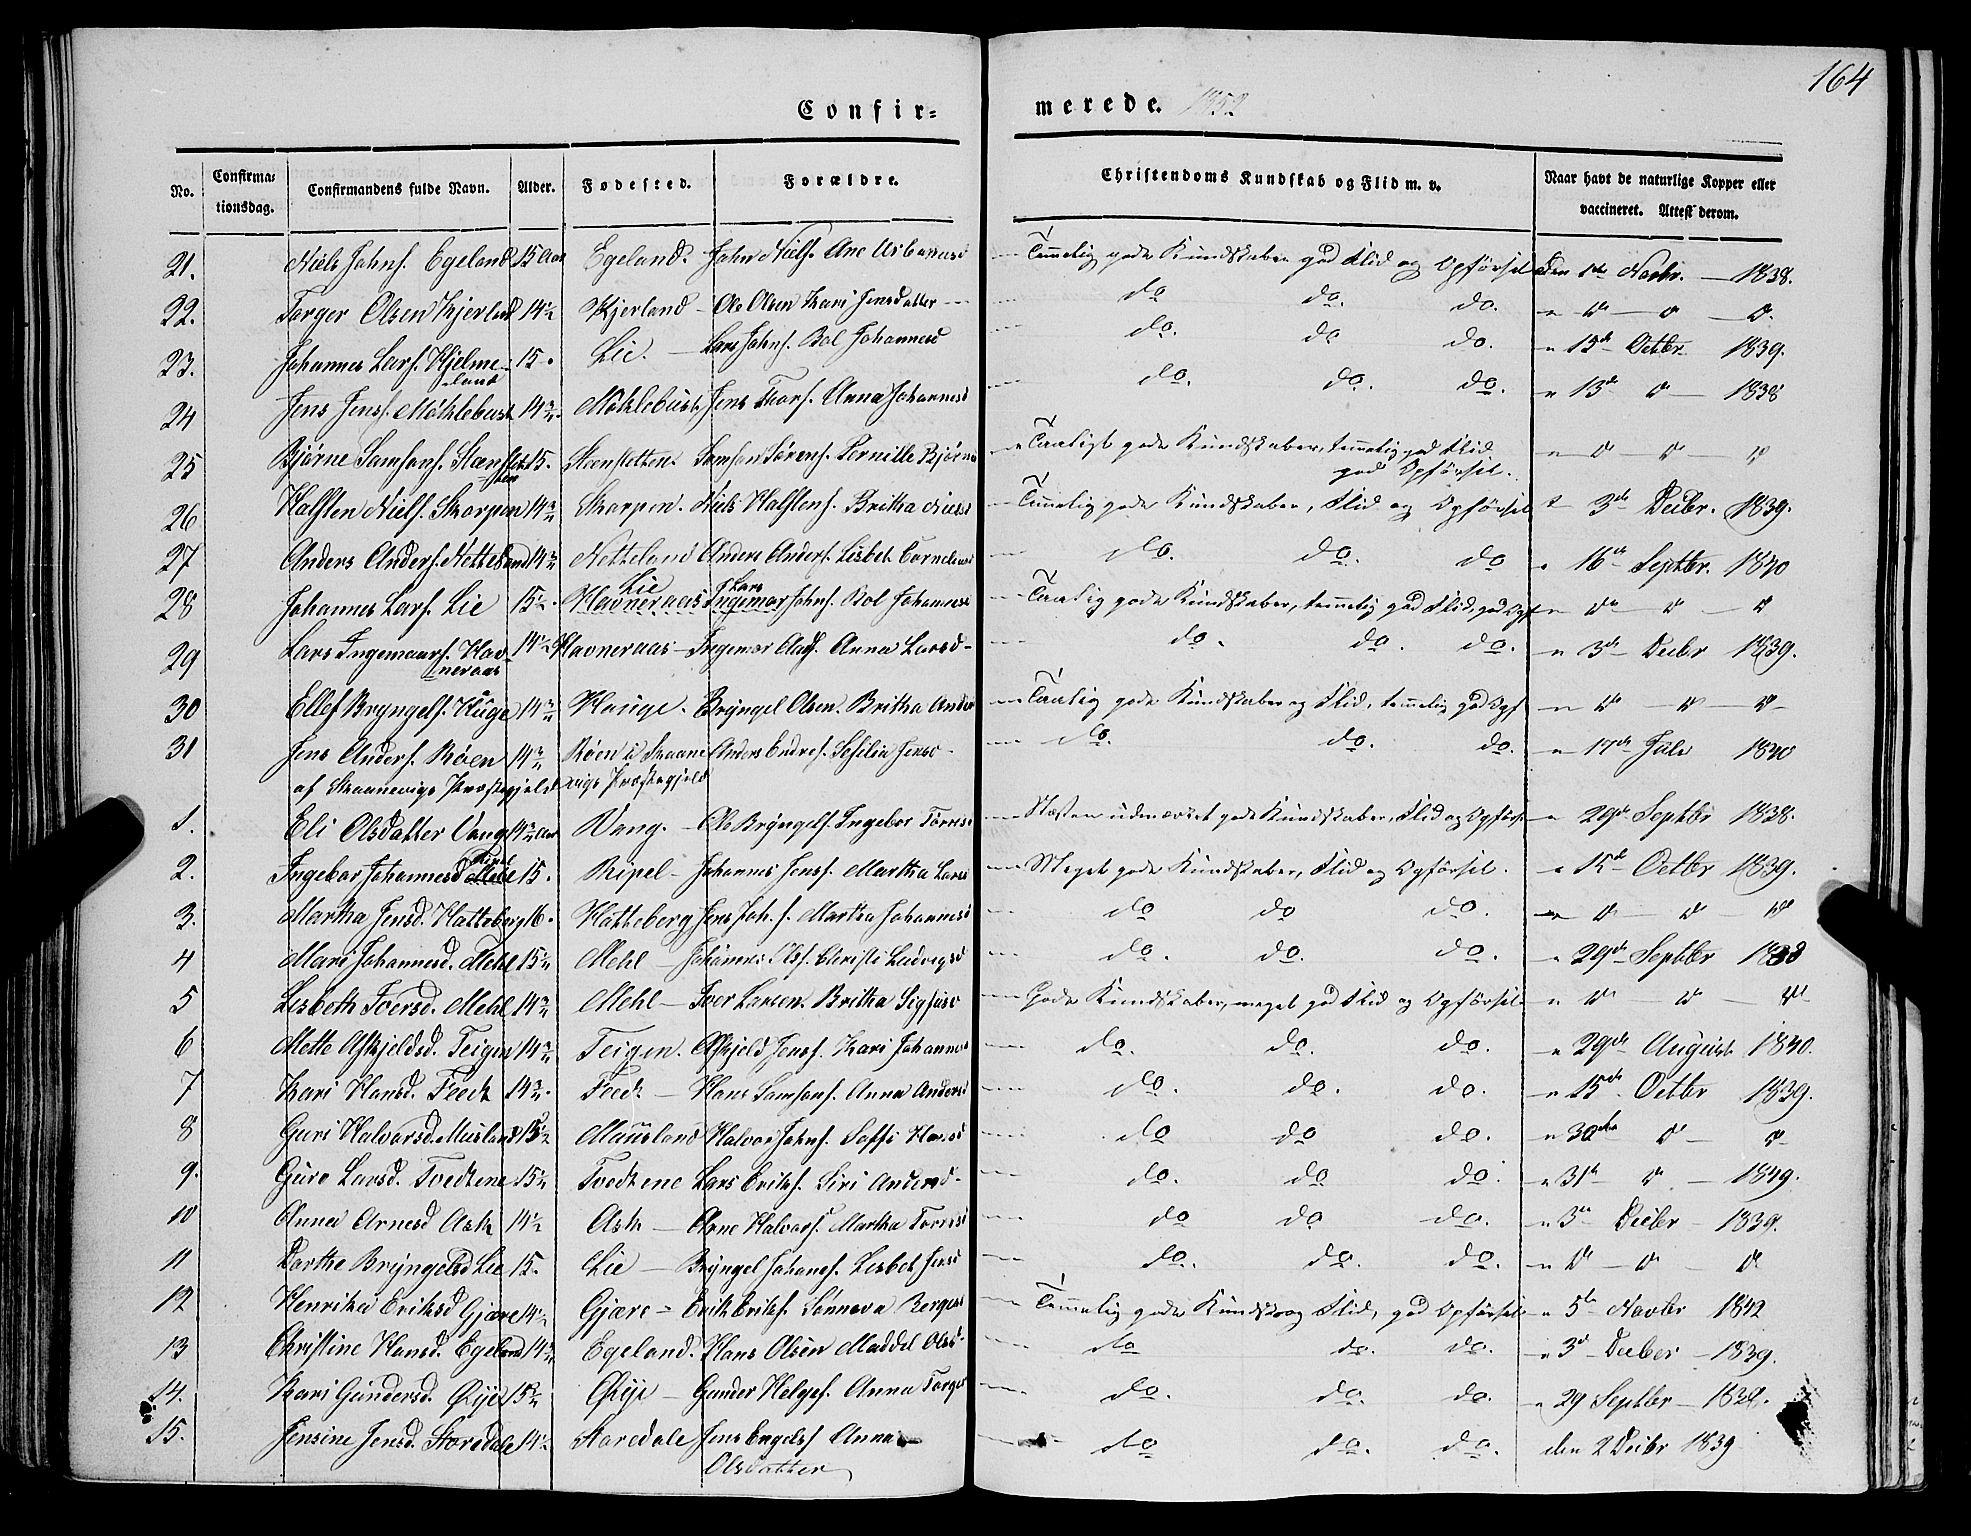 164
Confir= merede. 1852
No. Confirma= tionsdag. Confirmandens fulde Navn. Alder. Fødested. Forældre. Christendoms Kundskab og Flid m. v. Naar havt de naturlige Kopper eller vaccineret. Attest derom.
21. Niels Johns. Egeland 15 Aar Egeland. John Niels. Ane Temmelig gode Kundskaber god Flid og Opførsel den 1ste Novbr. — 1838.
22. Torger Olsen Kjerland 14½ Kjerland — Ole Olsen Kari Jensdatter — do do. do. " d — d — d.
23. Johannes Lars. Hjelme- 15 " Lie. — Lars Johns. Bol Johannesd do. do do. " 15de Octbr 1839.
land
24 Jens Jens. Møklebust 14¾ Møklebust Jens Thors. Anna Johannesd do. do. do. " 13de d — 1838
25 Bjørne Samsons. Steenslet- 15. Steensletten. Samson Sørens. Pernille Bjørns " Taaligt gode Kundskaber, temmelig god Flid — " d — d — d
ten god Opførsel.
26 Halsten Niels. Skarpen 14¾ Skarpen. Niels Halstens. Britha Nielsd — Temmelig gode Kundskaber, Flid og Opførsel " 3de Decbr. 1839.
27 Anders Anders. Netteland 14¾ Netteland Anders Anders. Lisbet Cornelius do. do. do " 16de Septbr. 1840
Lie Lars
28 Johannes Lars. Lie 15½ . Havneraas Ingemar Johns. Bol Johannesd — Taalig gode Kundskaber, temmelig god Flid, god Opf " d — d — d
29 Lars Ingemaars. Hav- 14½ Havneraas — Ingemar Anna Larsd — do. do. do. " 3de Decbr 1839.
neraas
30 Ellef Bryngels. Huge 14¾ Hauge. Bryngel Olsen. Britha Ander — Taalig gode Kundskaber og Flid, temmelig god Opf " d — d — d
31 Jens Anders. Røen 14¾ Røen i Skaane Anders Endres. Sesilia Jensd — do. do. do. " 17de Juli 1840
af Skaanevigs Præstegjeld vigs Præstegjeld
1. Eli Olsdatter Vang 14¾ Aar Vang. — Ole Bryngels. Ingebor Torresd — Næsten udmærket gode Kundskaber, Flid og Opførs " 29de Septbr 1838.
Ripel
2. Ingebor Johannesd Mehl 15. Ripel — Johannes Jens. Martha Larsd — Meget gode Kundskaber, Flid og Opførsel. " 15de Octbr 1839.
3. Martha Jensd. Hatteberg 16. Hatteberg Jens Joh. s. Martha Johannesd — do do do. " d — d — d
4 Mari Johannesd. Mehl 15¼ Mehl — Johannes Ols. Christi Ludvigsd do. do. do. " 29de Septbr 1838
5 Lisbeth Iversd. Mehl 14¾ Mehl — Iver Larsen. Britha Sigfusd — Gode Kundskaber, meget god Flid og Opførsel " d d — d
6 Mette Askjeldsd. Teigen 14¾ Teigen. Askjeld Jens. Kari Johannes do. do. do. " 29de August 1840.
7 Kari Hansd. Feet 14¾. Feet — Hans Samsons. Anna Andersd do. do. do. " 15de Octbr 1839.
8 Guri Halvorsd. Musland 15½ Mausland Halvor Johns. Soffi Hansd do do do. " 30de d — d
9. Guro Larsd. Tvedtene 15¼ Tvedtene Lars Eriks. Siri Andersd. do. do do. " 31te d — 1849.
10 Anna Arnesd Ask 14½ Ask — Arne Halvors. Martha Torresd do do do. " 3de Decbr — 1839.
11 Dorthe Bryngelsd Lie 15. Lie — Bryngel Johanes. Lisbet Jensd do. do. do. " d — d — d
12 Henrika Eriksd Gjære 14½ Gjære — Erik Eriks. Sønneva Bergesd — Temmelig gode Kundsk og Flid, god Opførsel " 5te Novbr 1842
13 Christine Hansd. Egeland 14¾ Egeland. Hans Olsen Maddel Olsd. do do. do. " 3d Decber — 1839.
14. Kari Gundersd. Øije 15¾ Øije — Gunder Helges. Anna Torgers do. do. do. " 29 Septbr —
15. Jensine Jensd. Storedale 14½ Storedale Jens Engels Anna do do. do. den 2 Decbr 1839
Olsdatter